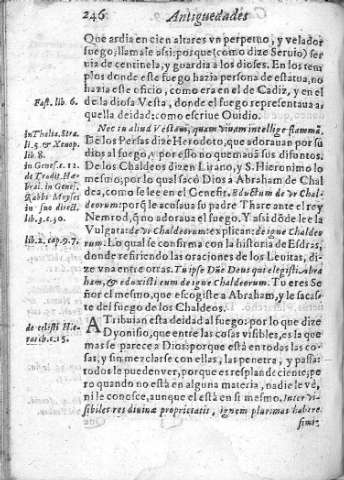 246
Antiguedades
Que ardia en cien altares vn perpetuo, y velador
fuego; llamase assi: porque (como dize Seruio) ser
uia de centinela, y guardia a los dioses. En los tem
plos donde este fuego hazia persona de estatua, no
hazia este oficio, como era en el de Cadiz, y en el
de la diosa Vesta, donde el fuego representaua a
quella deidad; como escriue Ouidio.
Fast. lib. 6.
Nec tu aliud Vestam, quam viuam intellige flammã.
De los Persas dize Herodoto, que adorauan por su
dios al fuego, y por esso no quemauã sus difuntos.
De los Chaldeos dizen Lirano, y S. Hieronimo lo
mesmo, por lo qual sacó Dios a Abraham de Chal
dea, como se lee en el Genesis. Eductum de vr Chal-
deorum: porq̃ le acusaua su padre Thare ante el rey
Nemrod, q̃ no adoraua el fuego. Y assi dõde lee la
Vulgata: de vr Chaldeorum: explican: de igne Chaldeo
rum. Lo qual se confirma con la historia de Esdras,
donde refiriendo las oraciones de los Leuitas, di-
ze vna entre otras. Tu ipse Dñe Deus qui elegisti Abra
ham, & eduxisti eum de igne Chaldeorum. Tu eres Se
ñor el mesmo, que escogiste a Abraham, y le sacas-
te del fuego de los Chaldeos.
In Thalia. Stra.
li. 5. & Xenop.
lib. 8.
in Genes. c. 12.
de Tradit. He-
brai. in Genes.
Rabbi Moyses
in suo direct.
lib. 3. c. 30.
lib. 2. cap. 9. 7.
ATribuian esta deidad al fuego: por lo que dize
Dyonisio, que entre las cosas visibles, es la que
mas se parece a Dios: porque está en todas las co-
sas, y sin mezclarse con ellas, las penetra, y passa: a
todos se puede ver, porque es resplandeciente; pe
ro quando no está en alguna materia, nadie le vé,
ni le conosce, aunque el está en si mesmo. Inter vi-
sibiles res diuinæ proprietatis, ignem plurimas habere
simi-
de celesti Hie-
rarch. c. 15.